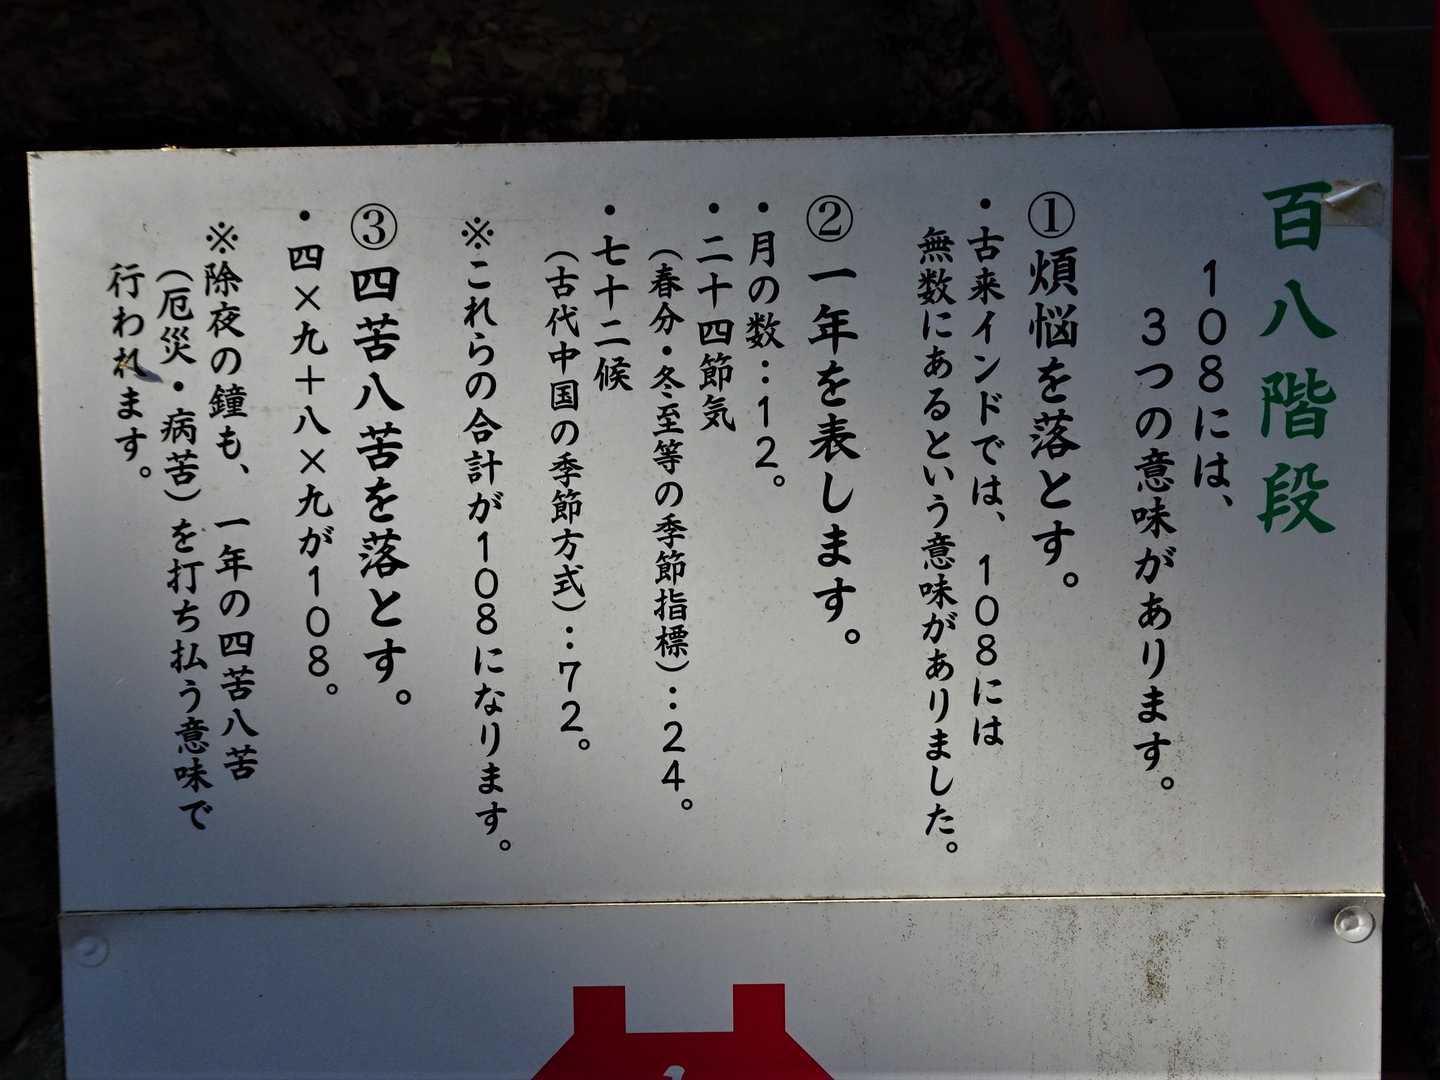 百八階段
108には、
3つの意味があります。
①煩悩を落とす。
・古来インドでは、108には
無数にあるという意味がありました。
②一年を表します。
・月の数：12。
・二十四節気
（春分・冬至等の季節指標）：24。
・七十二候
（古代中国の季節方式）：72。
※これらの合計が108になります。
③四苦八苦を落とす。
・四×九＋八×九が108。
※除夜の鐘も、一年の四苦八苦
（厄災・病苦）を打ち払う意味で
行われます。